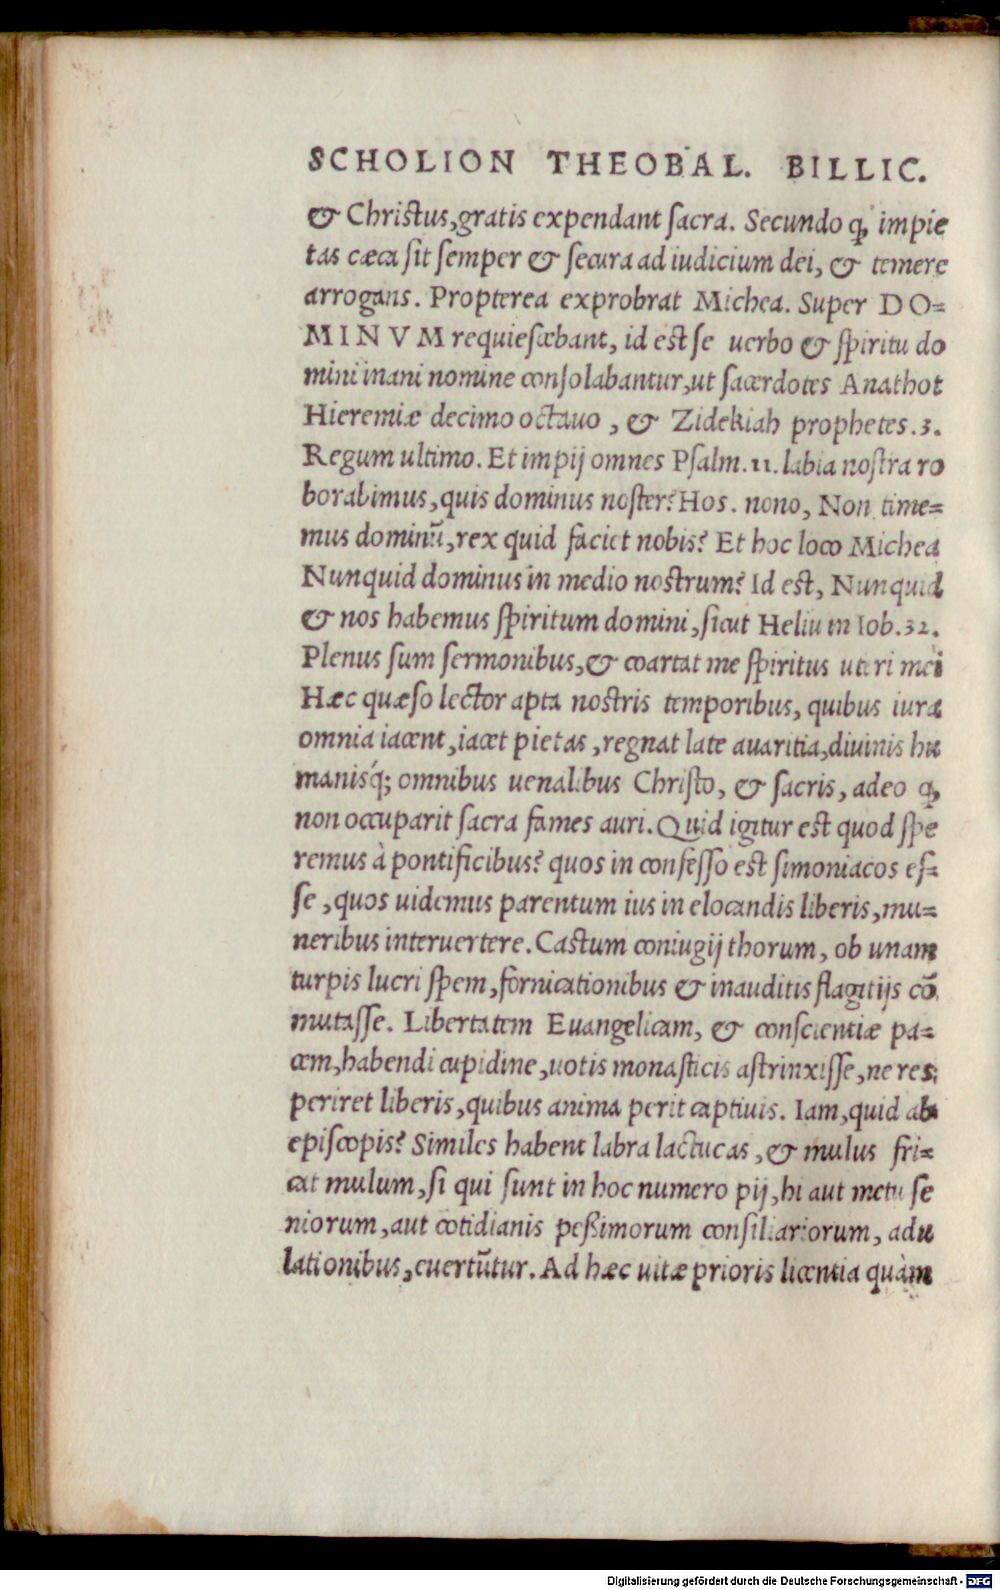 SCHOLION THEOBAL. BILLIC.
& Christus,gratis expendant sacra. Secundo ꝙ impie
tas cæca sit semper & secura ad iudicium dei, & temere
arrogans. Propterea exprobrat Michea. Super DO=
MINVM requiescebant, id est se uerbo & spiritu do
mini inani nomine consolabantur,ut sacerdotes Anathot
Hieremiæ decimo octauo , & Zidekiah prophetes.3.
Regum ultimo. Et impij omnes Psalm.11.labia nostra ro
borabimus,quis dominus noster?Hos. nono, Non time=
mus dominū,rex quid faciet nobis? Et hoc loco Michea
Nunquid dominus in medio nostrum? Id est, Nunquid
& nos habemus spiritum domini,sicut Heliu in Iob.32.
Plenus sum sermonibus,& coartat me spiritus uteri mei
Hæc quæso lector apta nostris temporibus, quibus iura
omnia iacent,iacet pietas ,regnat late auaritia,diuinis hu
manisq́; omnibus uenalibus Christo, & sacris, adeo ꝙ
non occuparit sacra fames auri. Quid igitur est quod spe
remus à pontificibus? quos in confesso est simoniacos es=
se ,quos uidemus parentum ius in elocandis liberis,mu=
neribus interuertere. Castum coniugij thorum, ob unam
turpis lucri spem,fornicationibus & inauditis flagitijs cō
mutasse. Libertatem Euangelicam, & conscientiæ pa=
cem,habendi cupidine,uotis monasticis astrinxisse,ne res
periret liberis,quibus anima perit captiuis. Iam,quid ab
episcopis? Similes habent labra lactucas ,& mulus fri=
cat mulum,si qui sunt in hoc numero pij,hi aut metu se
niorum,aut cotidianis peßimorum consiliariorum, adu
lationibus,euertūtur. Ad hæc uitæ prioris licentia quàm
Digitalisierung gefördert durch die Deutsche Forschungsgemeinschaft - DFG